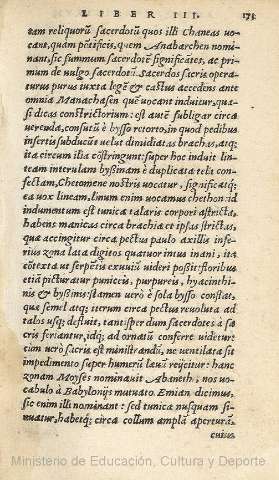 LIBER III. 173
tam reliquorū sacerdotū quos illi Chaneas uo
cant, quam pōtificis, quem Anabarchen nomi
nant, sic summum sacerdotē significātes, ac pri
mum de uulgo sacerdotū. Sacerdos sacris opera
turus purus iuxta legē & castus accedens ante
omnia Manachasen quē uocant induitur, qua
si dicas constrictorium: est autē subligar circa
uerenda, consutū è bysso retorto, in quod pedibus
insertis subducūt uelut dimidiatas brachas, atq;
ita circum ilia cōstringunt: super hoc induit lin
team interulam byßinam è duplicata tela con
fectam, Chetomene nostris uocatur, significatq;
ea uox lineam, linum enim uocamus chethon. id
indumentum est tunica talaris corpori astricta,
habens manicas circa brachia et ipsas strictas,
quæ accingitur circa pectus paulo axillis infe
rius zona lata digitos quatuor intus inani, ita
cōtexta ut serpētis exuuiū uideri poßit: floribus
etiā picturatur puniceis, purpureis, hyacinthi
nis & byßinis: stamen uero è sola bysso constat,
quæ semel atq; iterum circa pectus reuoluta ad
talos usq; defluit, tantisper dum sacerdotes à sa
cris feriantur, idq; ad ornatū conferre uidetur:
cum uero sacris est ministrandū, ne uentilata sit
impedimento super humerū læuū reijcitur: hanc
zonam Moyses nominauit Abaneth, nos uo
cabulo à Babylonijs mutuato. Emian dicimus,
sic enim illi nominant: sed tunica nusquam si-
nuatur, habetq; circa collum amplā aperturā
cuius
Ministerio de Educación, Cultura y Deporte